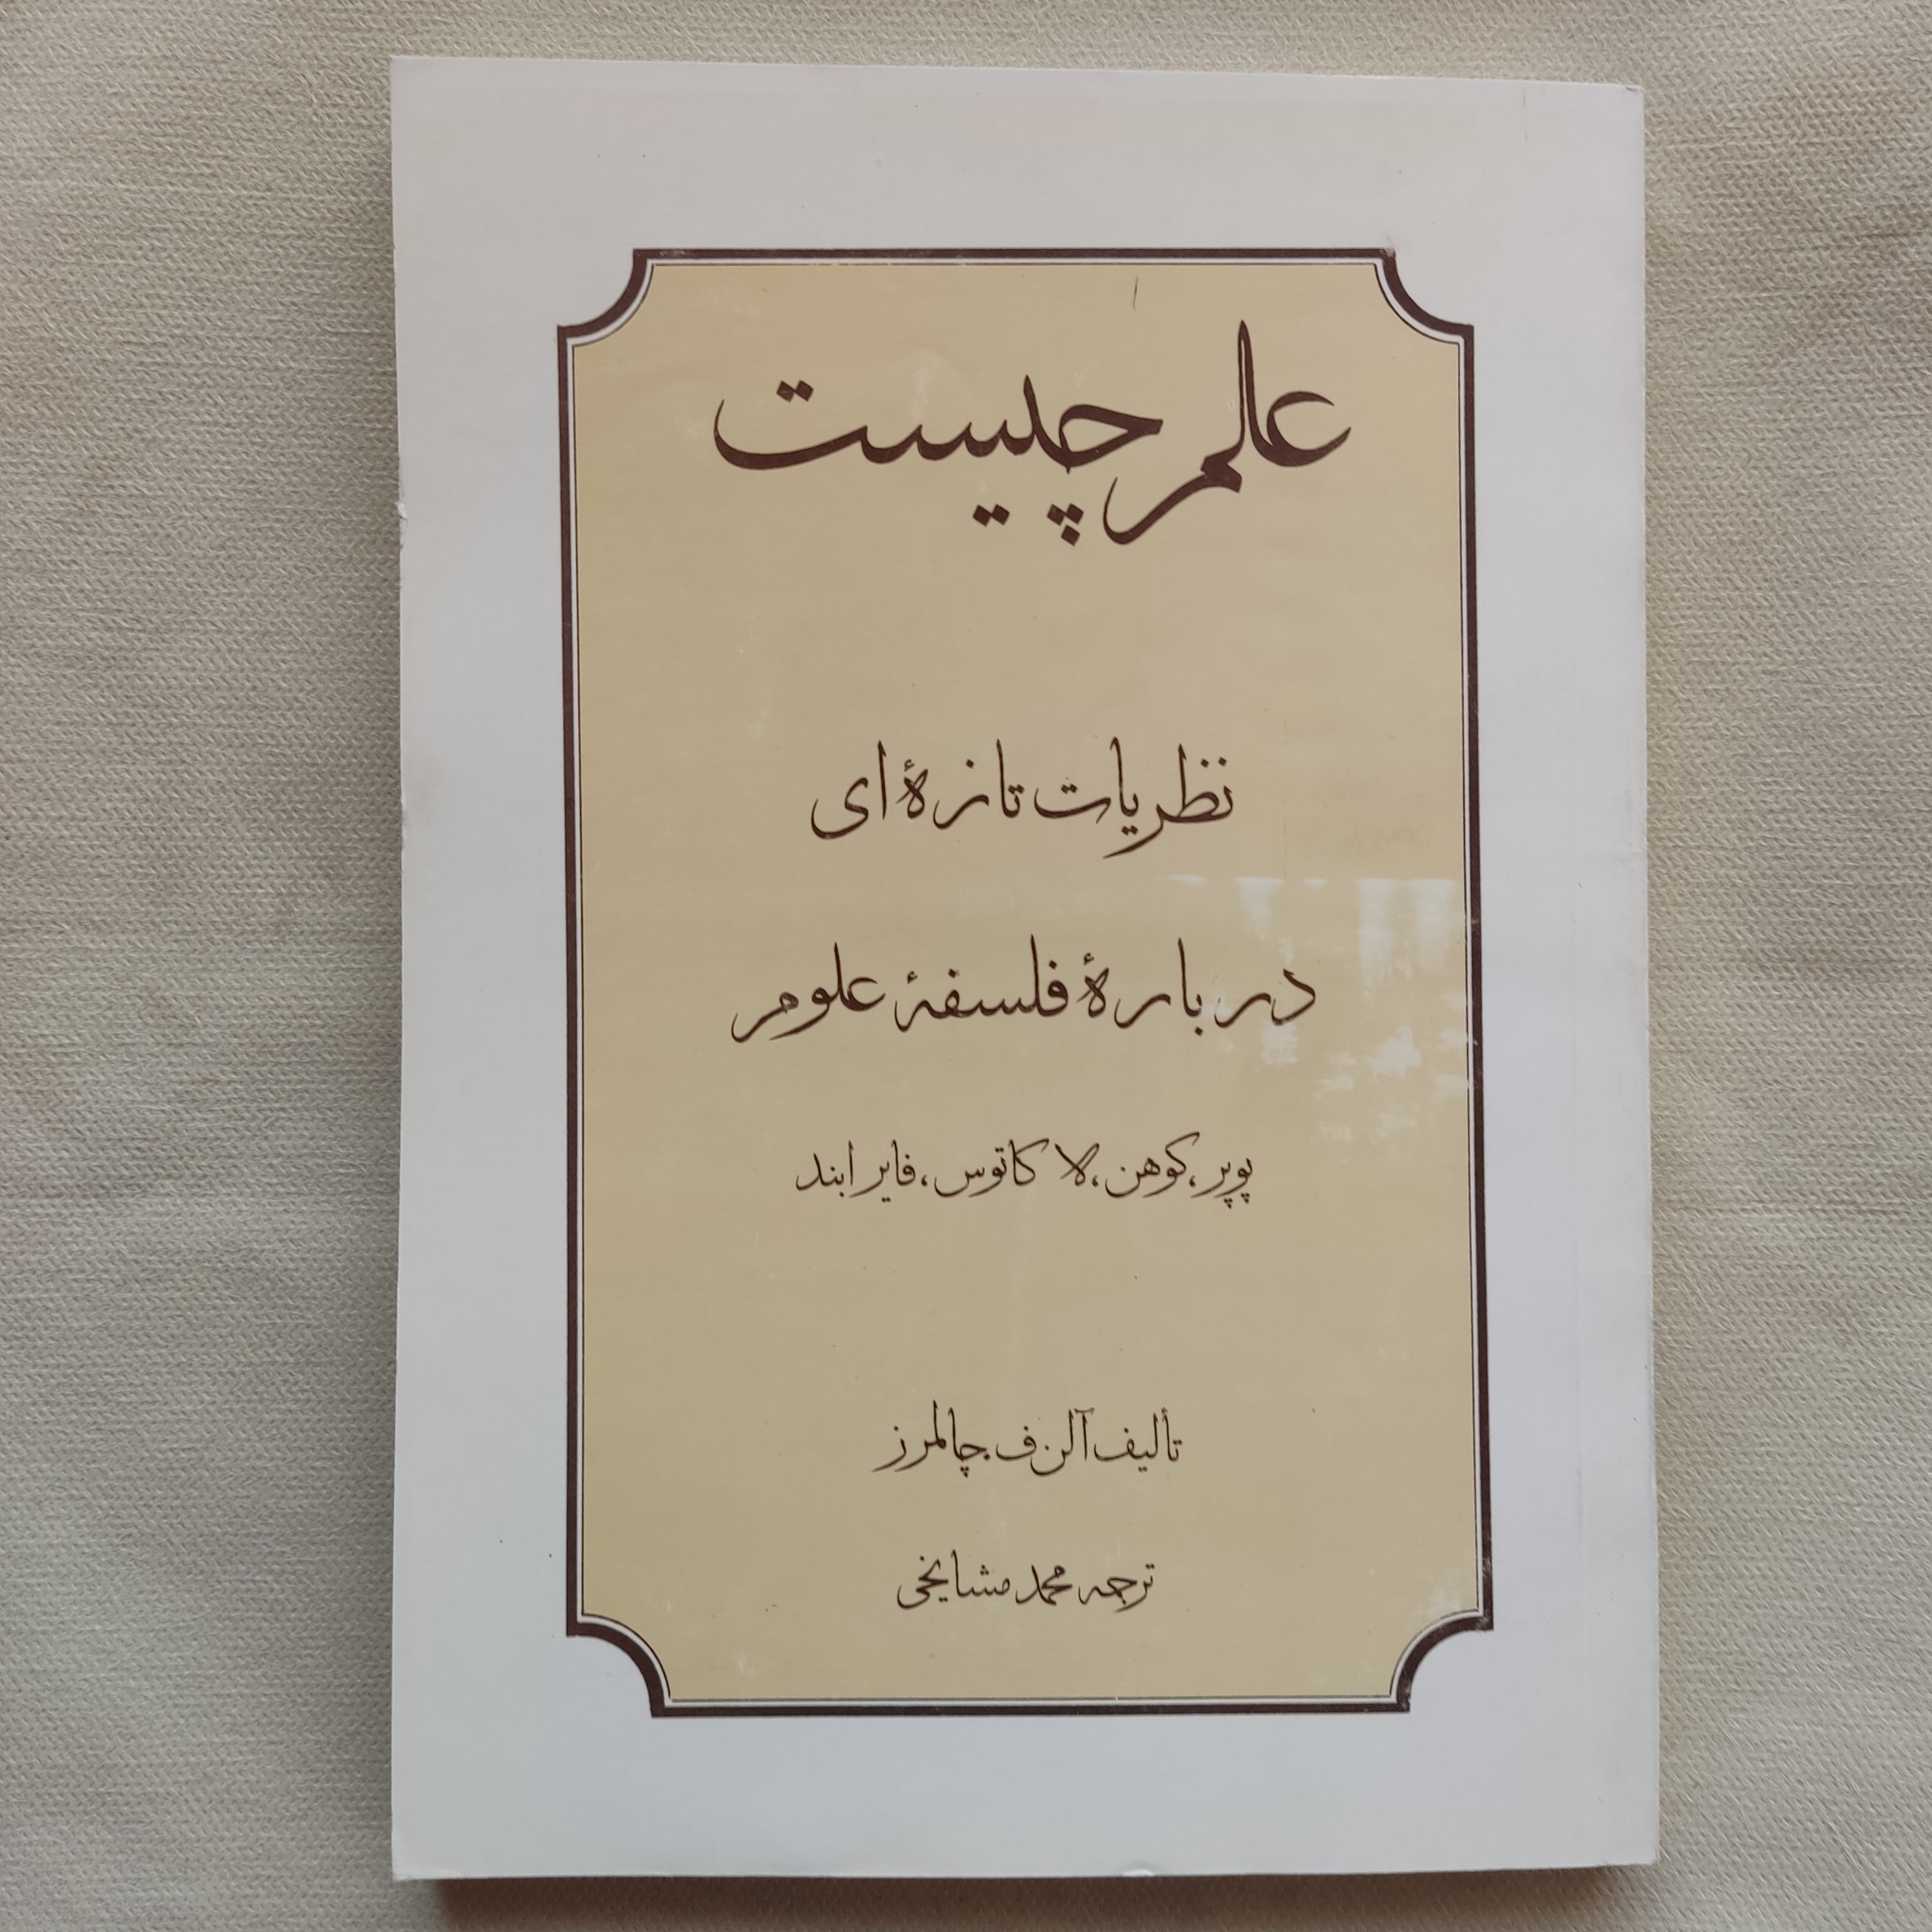 علم چیست
نظریات تازهٔ ای
در بارهٔ فلسفهٔ علوم
پوپر، کوهن، لا کاتوس، فایرابند
تألیف آلن. ف. چالمرز
ترجمه محمد مشایخی